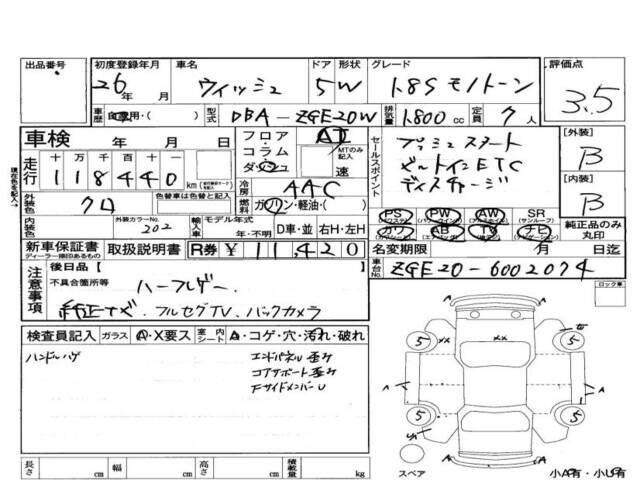 出品番号 初度登録年月 車名 ドア 形状 グレード 評価点
26年 月 ウィッシュ 5W 1.8S モノトーン 3.5
車歴 自家用・( ) 型式 DBA-ZGE20W 排気量 1800cc 定員 7人
車検 年 月 日 フロア・コラム・ダッシュ AT MTのみ記入 速
走行 十万千百十 118440 km
セールスポイント
プッシュスタート
ビルトインETC
ディスチャージ
[外装] B
[内装] B
現在色を記入→
外装色 クロ 色替車は色替と記入 冷房 AAC
燃料 ガソリン・軽油・( )
内装色 外装カラーNo. 202 輸入車 モデル年式 年・不明 D車・並 右H・左H
PS PW AW SR
カワ AB TV ナビ
純正品のみ丸印
新車保証書 取扱説明書 R券 ¥11,420
ディーラー捺印あるもの
名変期限 月 日迄
車台No. ZGE20-6002074
注意事項
後日品【 】
不具合箇所等
ハーフレザー
純正ナビ、フルセグTV、バックカメラ
ロック車
検査員記入 ガラス A・X要ス 室内シート A・コゲ・穴・汚れ・破れ
ハンドルハゲ
エンドパネル歪み
コアサポート歪み
FサイドメンバーU
XX XX
5 5
A A
5 5
A A
スペア
小A有・小U有
長さ cm 幅 cm 高さ cm 積載量 kg